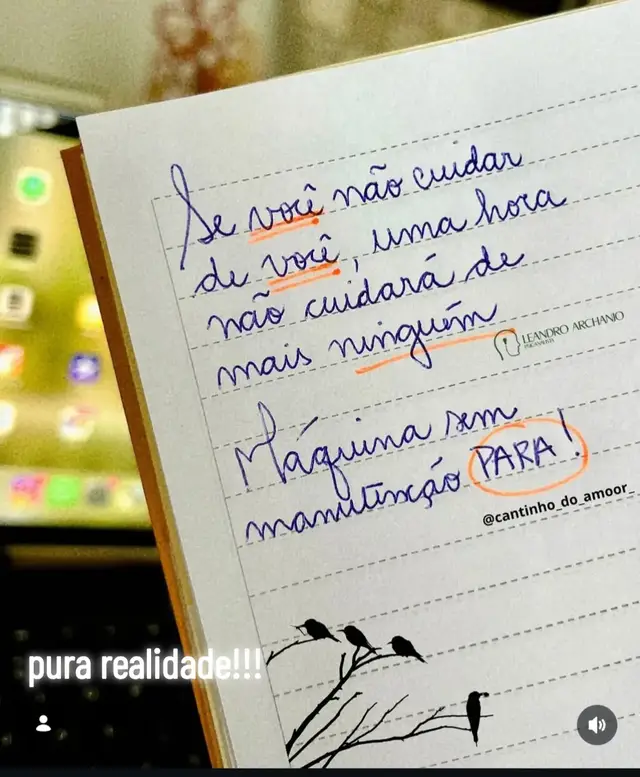 Se você não cuidar
de você, uma hora
não cuidará de
mais ninguém
LEANDRO ARCHANJO
PSICANALISTA
Máquina sem
manutenção PARA!
@cantinho_do_amoor_
pura realidade!!!